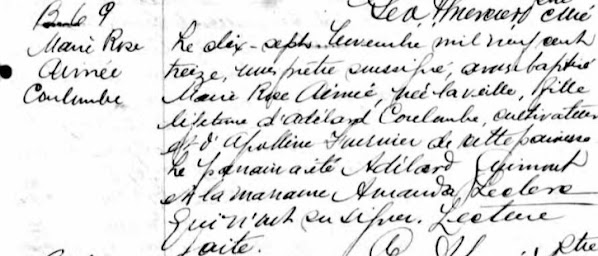 Geo Mercier ptre curé
B 69
Marie Rose
Aimée
Coulombe
Le dix-sept Novembre mil neuf cent
treize, nous prêtre soussigné, avons baptisé
Marie Rose Aimée, née la veille, fille
légitime d'Adélard Coulombe, cultivateur
et d'Apolline Fournier de cette paroisse.
Le parrain a été Adélard Guimont
et la marraine Amanda Leclerc
qui n'ont su signer. Lecture
faite.
Ptre